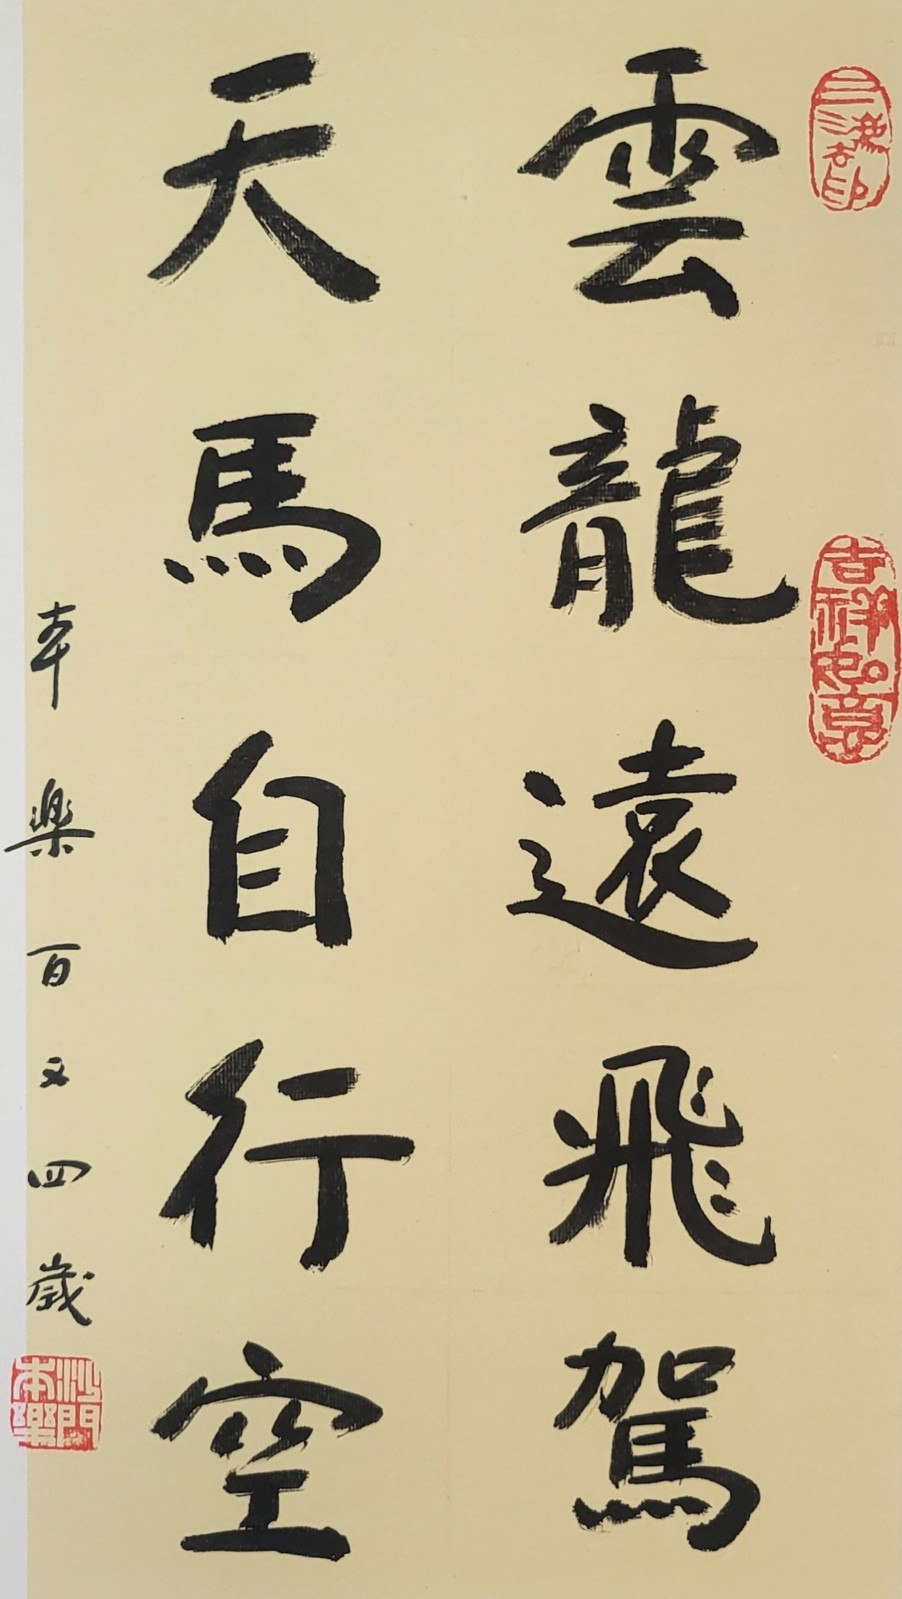 三法印
吉祥如意
雲龍遠飛駕
天馬自行空
本樂百又四歲
沙門本樂